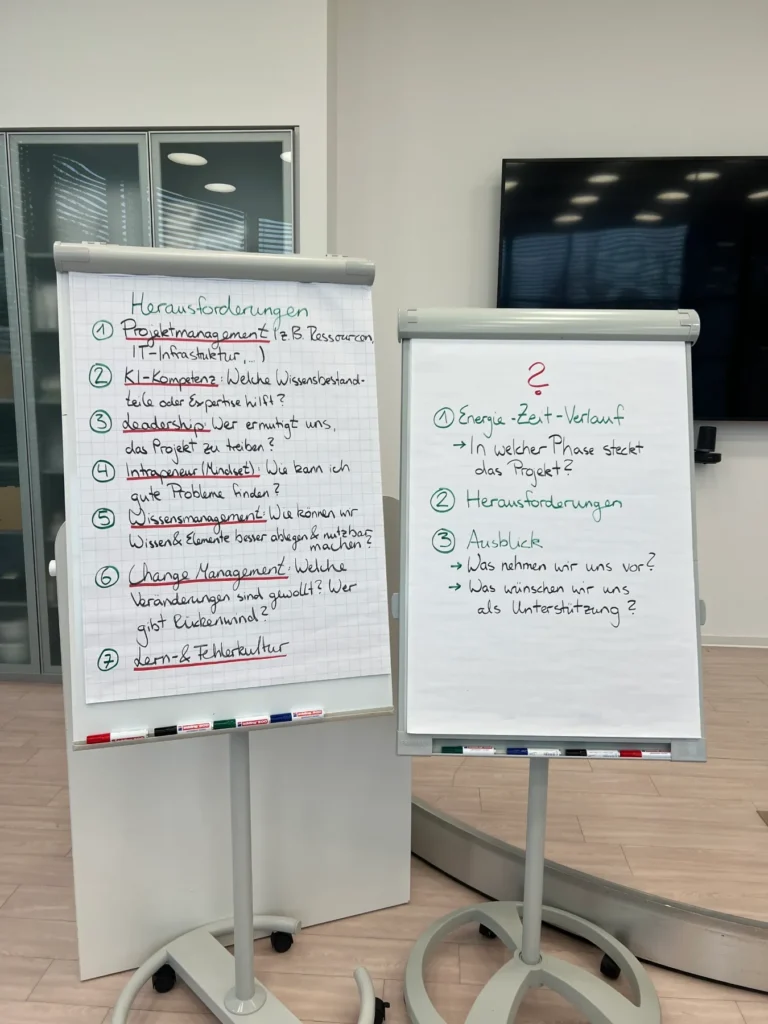 Herausforderungen
① Projektmanagement (z.B. Ressourcen,
IT-Infrastuktur,..)
② KI-Kompetenz: Welche Wissensbestand-
teile oder Expertise hilft?
③ Leadership: Wer ermutigt uns,
das Projekt zu treiben?
④ Intrapeneur (Mindset): Wie kann ich
gute Probleme finden?
⑤ Wissensmanagement: Wie können wir
Wissen & Elemente besser ablegen & nutzbar
machen?
⑥ Change Management: Welche
Veränderungen sind gewollt? Wer
gibt Rückenwind?
⑦ Lern- & Fehlerkultur
?
① Energie-Zeit-Verlauf
→ In welcher Phase steckt
das Projekt?
② Herausforderungen
③ Ausblick
→ Was nehmen wir uns vor?
→ Was wünschen wir uns
als Unterstützung?